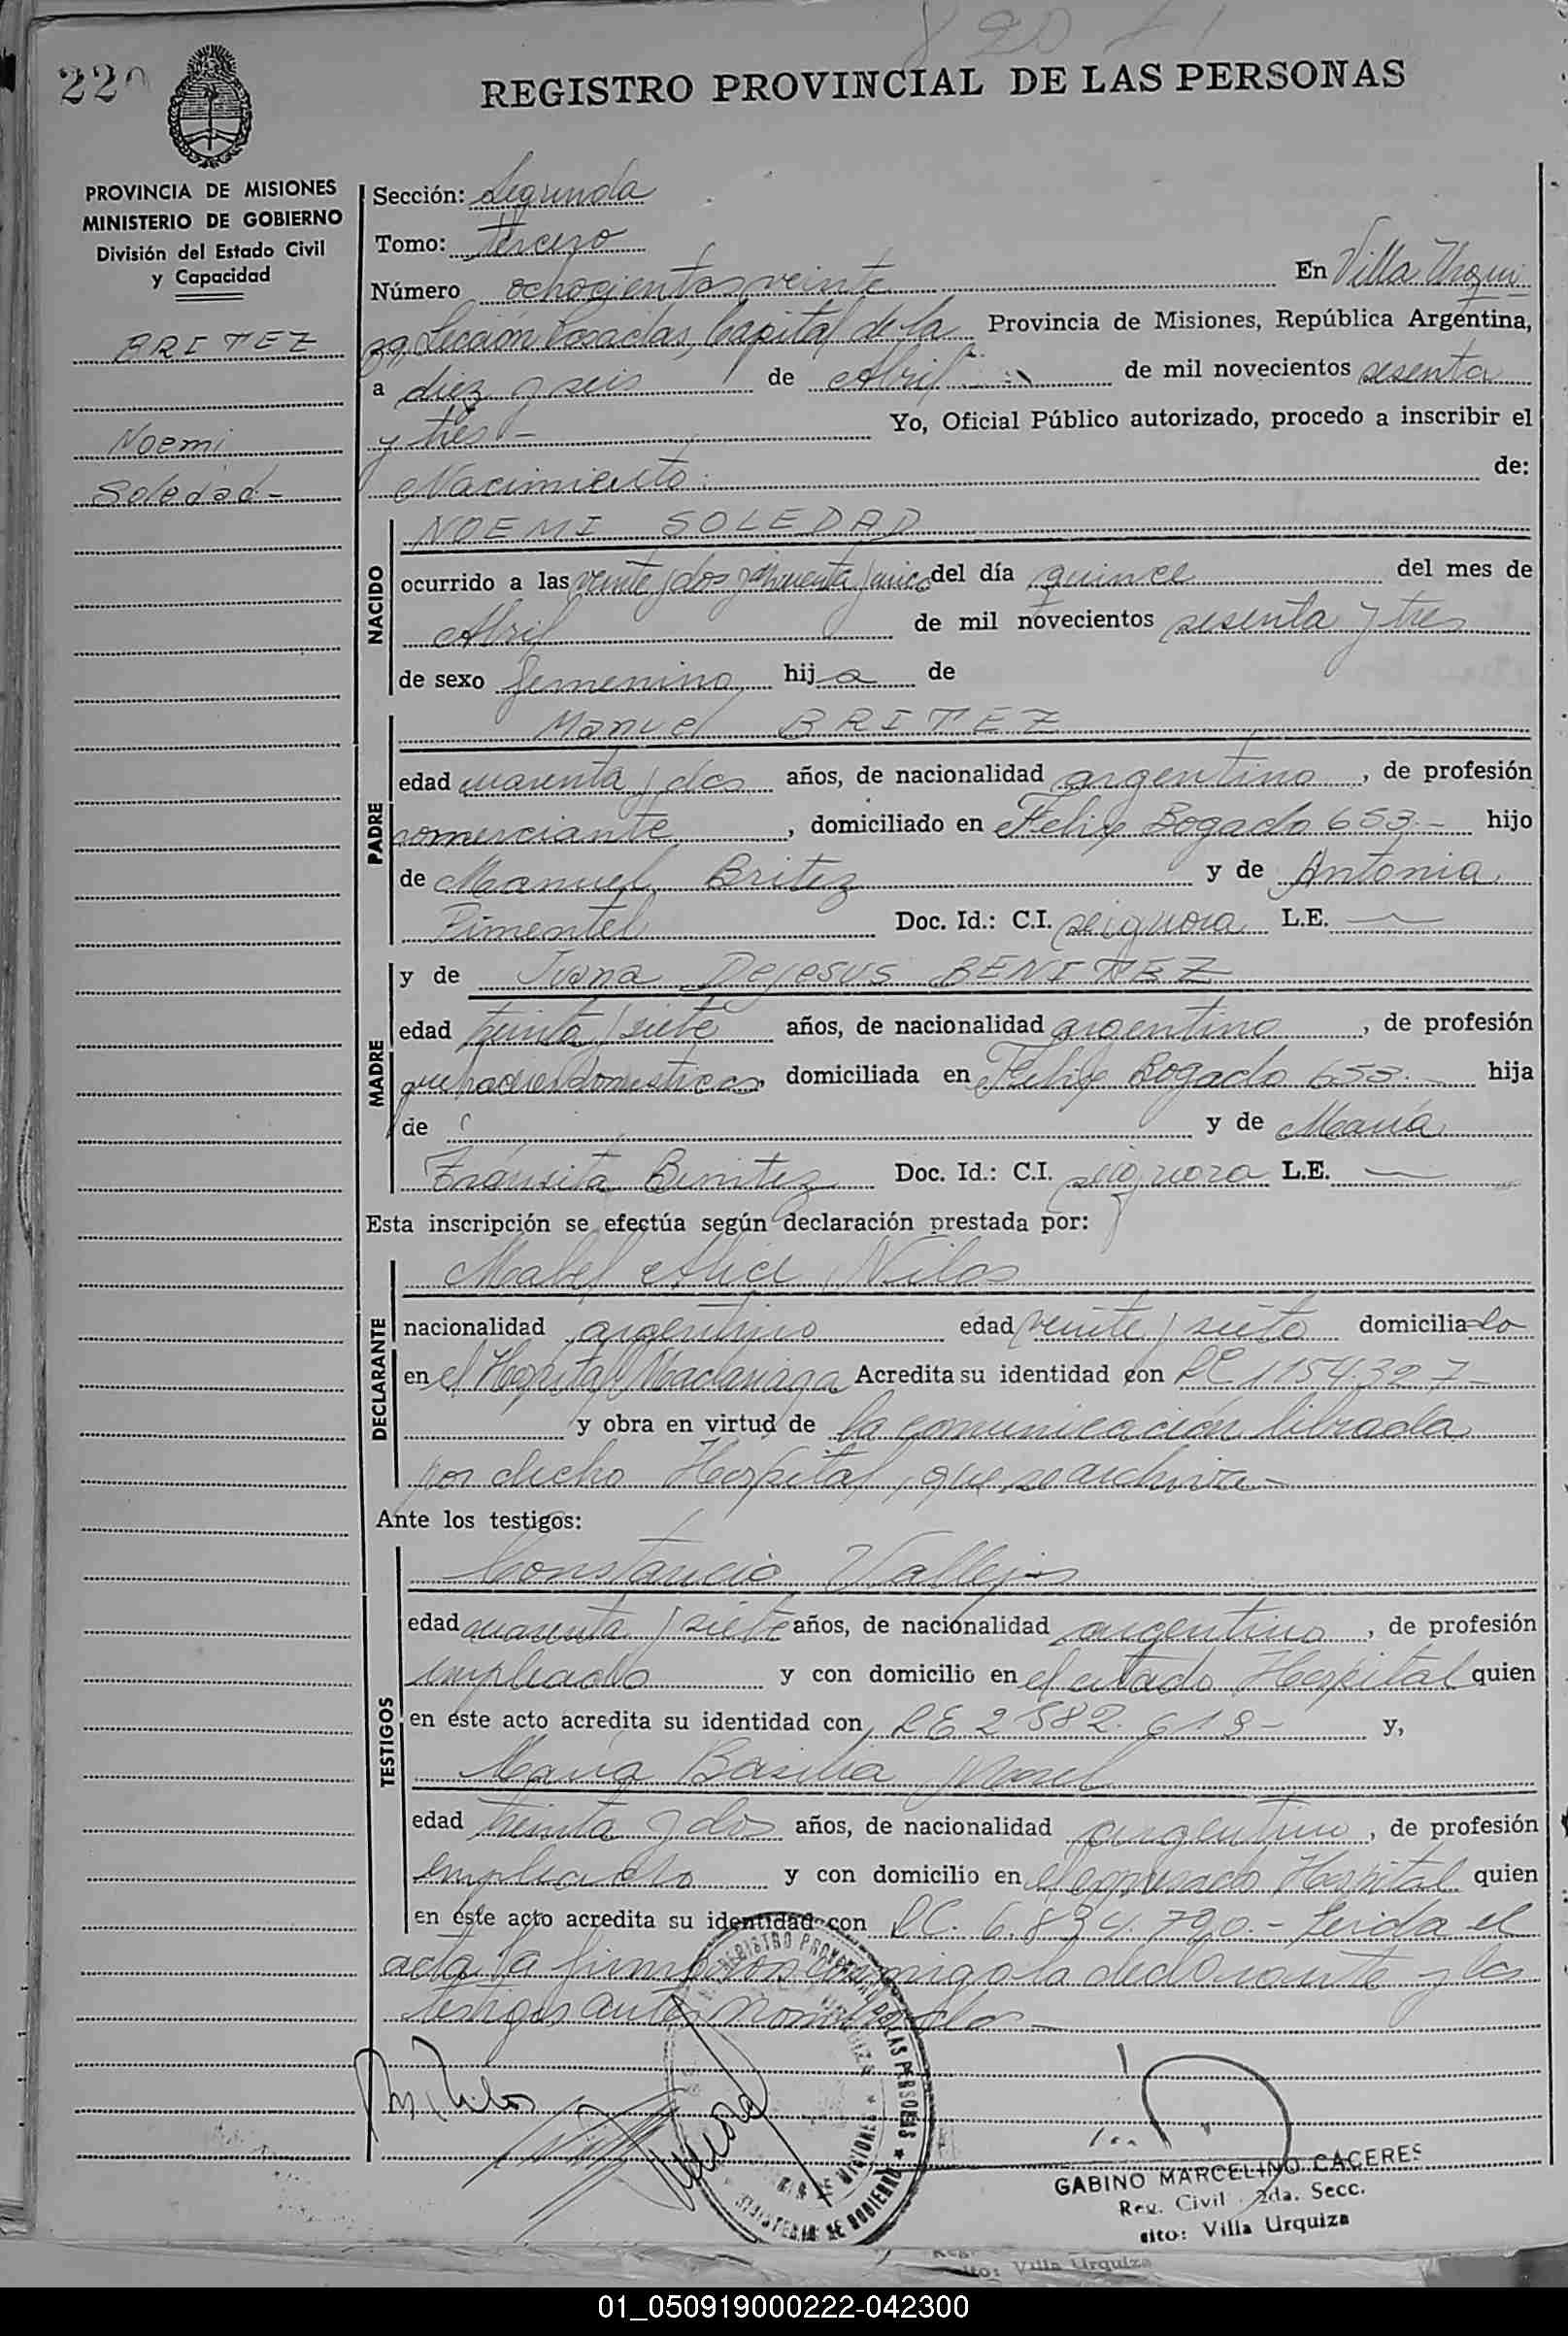 220
820
REGISTRO PROVINCIAL DE LAS PERSONAS
PROVINCIA DE MISIONES
MINISTERIO DE GOBIERNO
División del Estado Civil
y Capacidad
BRITEZ
Noemi
Soledad-
Sección: Segunda
Tomo: Tercero
Número ochocientos veinte En Villa Urqui-
za, Sección Posadas, Capital de la Provincia de Misiones, República Argentina,
a diez y seis de Abril de mil novecientos sesenta
y tres - Yo, Oficial Público autorizado, procedo a inscribir el
Nacimiento: de:
NACIDO
NOEMI SOLEDAD
ocurrido a las veinte y dos y cincuenta y cinco del día quince del mes de
Abril de mil novecientos sesenta y tres
de sexo femenino hija de
PADRE
Manuel BRITEZ
edad cuarenta y dos años, de nacionalidad argentino, de profesión
comerciante, domiciliado en Felix Bogado 653.- hijo
de Manuel Britez y de Antonia
Pimentel Doc. Id.: C.I. se ignora L.E. —
MADRE
y de Juana Dejesus BENITEZ
edad treinta y siete años, de nacionalidad argentina, de profesión
quehaceres domesticos domiciliada en Felix Bogado 653.- hija
de y de María
Tránsita Benitez Doc. Id.: C.I. se ignora L.E. —
Esta inscripción se efectúa según declaración prestada por:
DECLARANTE
Mabel Alice Nilos
nacionalidad argentino edad veinte y siete domiciliado
en el Hospital Madariaga Acredita su identidad con LC 1154.327-
y obra en virtud de la comunicación librada
por dicho Hospital, que se archiva-
Ante los testigos:
TESTIGOS
Constancio Vallejos
edad cuarenta y siete años, de nacionalidad argentino, de profesión
empleado y con domicilio en el citado Hospital quien
en este acto acredita su identidad con LE 2.582.619- y,
María Basilia Morel
edad treinta y dos años, de nacionalidad argentino, de profesión
empleado y con domicilio en el expresado Hospital quien
en este acto acredita su identidad con LC. 6.834.790.- Leida el
acta la firmaron conmigo la declarante y los
testigos antes nombrados -
REGISTRO PROVINCIAL DE LAS PERSONAS
MINISTERIO DE GOBIERNO
GABINO MARCELINO CACERES
Reg. Civil 2da. Secc.
sito: Villa Urquiza
sito: Villa Urquiza
01_050919000222-042300